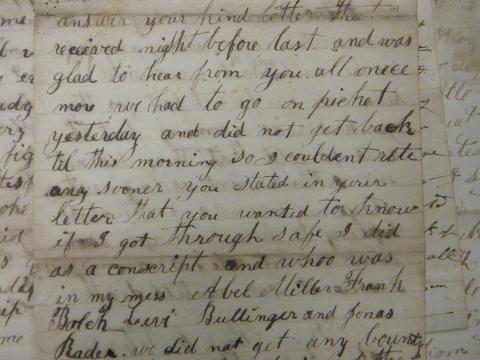 answer your kind letter that I
received night before last and was
glad to hear from you all onece
more we had to go on picket
yesterday and did not get back
til this morning so I couldent rite
any sooner you stated in your
letter that you wanted to know
if I got through safe I did
as a conscript and whoo was
in my mess Abel Miller Frank
Bolch Levi Bullinger and Jonas
Rader. we did not get any bounty